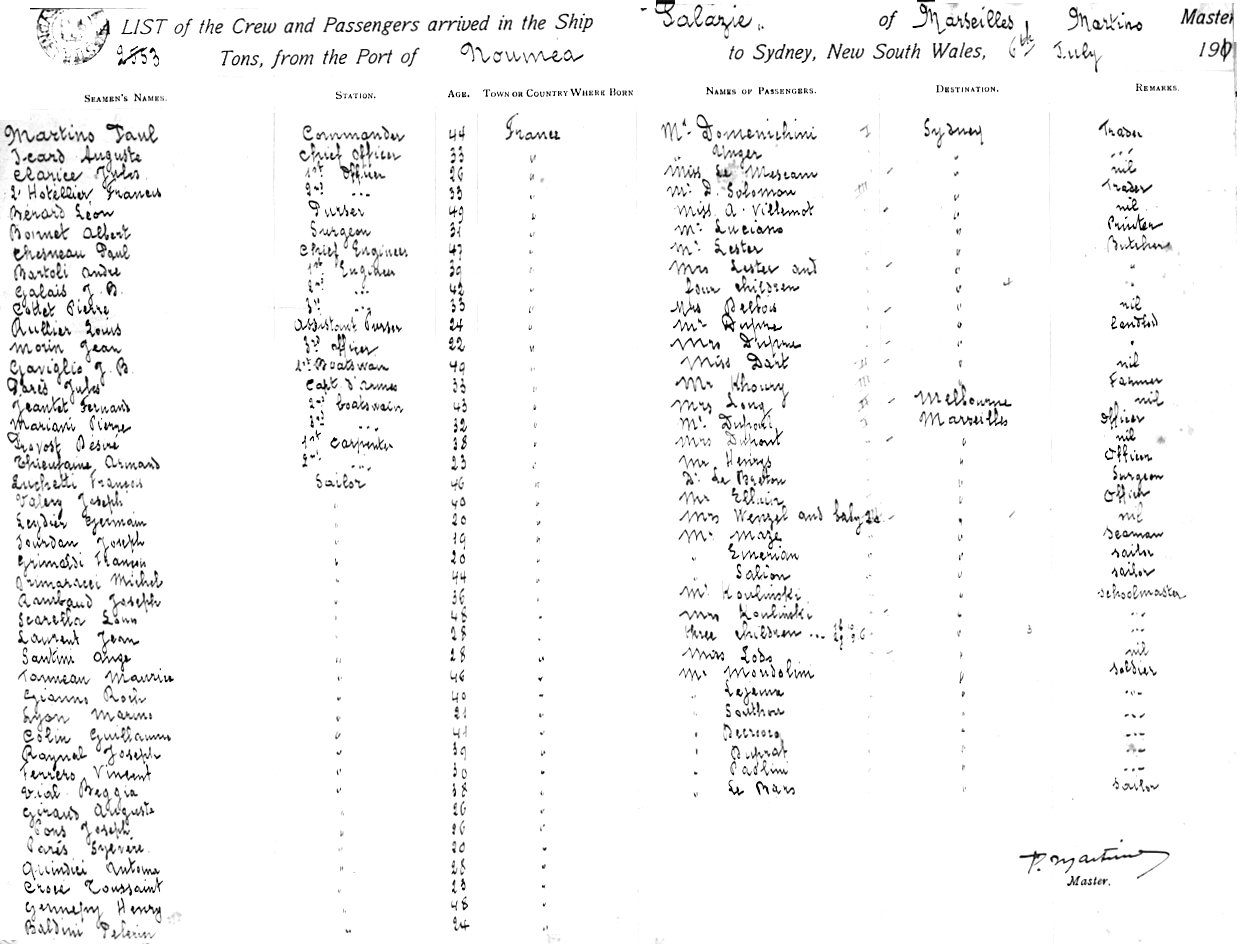 A LIST of the Crew and Passengers arrived in the Ship "Salazie" of Marseilles Martino Master
2553 Tons, from the Port of Noumea to Sydney, New South Wales, 6th July 190
SEAMEN'S NAMES. STATION. AGE. TOWN OR COUNTRY WHERE BORN NAMES OF PASSENGERS. DESTINATION. REMARKS.
Martino Paul Commander 44 France
Icard Auguste Chief Officer 33 "
Clarice Jules 1st Officer 26 "
L'Hotellier Francis 2nd ... 33 "
Berard Leon Purser 49 "
Bonnet Albert Surgeon "
Chesneau Paul Chief Engineer "
Bartoli André 1st Engineer "
Galais J. B. 2nd ... 42 "
Collet Pierre 3rd ... 33 "
Rullier Louis Assistant Purser 24 "
Morin Jean 3rd Officer 22 "
Gaviglio J. B. 1st Boatswain 49 "
Parès Jules Capt. d'Armes 33 "
Jeantet Fernand 2nd boatswain 43 "
Mariani Pierre 3rd ... 32 "
Provost Désiré 1st Carpenter 38 "
Thieufaine Armand 2nd ... 23 "
Luchetti François Sailor 46 "
Valery Joseph " 40 "
Leydier Germain " 20 "
Jourdan Joseph " 19 "
Grimaldi François " 20 "
Michel " 44 "
Rambaud Joseph " 36 "
Scarella Louis " 48 "
Laurent Jean " 28 "
Santini Ange " 28 "
Tanneau Maurice " 46 "
Gianno Roch " 40 "
Lyon Marino " 21 "
Colin Guillaume " 41 "
Raynal Joseph " 39 "
Ferrero Vincent " 30 "
Vial Beggia " 38 "
Giraud Auguste " 26 "
Pons Joseph " 26 "
Parés Sylvère " 20 "
Quindici Antoine " 28 "
Croce Toussaint " 23 "
Gennepy Henry " 48 "
Baldini Pelerin " 24 "
Mr Domenichini Sydney Trader
" Unger " ...
Miss Le Mescam " nil
Mr D. Solomon " Trader
Miss A. Villemot " nil
Mr Luciano " Printer
Mr Lester " Butcher
Mrs Lester and " "
four children " 4 "
Mrs Belbos " nil
Mr Dupne " Landlord
Mrs Dupne " "
Miss Dart " nil
Mr Khoury " Farmer
Mrs Long Melbourne nil
Mr Dupont Marseilles Officer
Mrs Dupont " nil
Mr Henrys " Officer
Dr Le Breton " Surgeon
Mr Elluin " Officer
Mrs Wenzel and baby " nil
Mr Maze " Seaman
" Emerian " sailor
" Salion " sailor
Mr Koulinski " schoolmaster
Mrs Koulinski " ...
three children ... " 3 ...
Miss Lods " nil
Mr Mondolini " soldier
" Lejeune " ...
" Southon " ...
" Decroocq " ...
" Duprat " ...
" Paolini " ...
" Le Bars " sailor
P. Martino
Master.